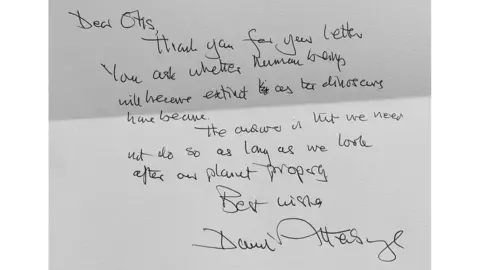 Dear Otis,
Thank you for your letter
You ask whether human beings
will become extinct as the dinosaurs
have become.
The answer is that we need
not do so as long as we look
after our planet properly
Best wishes
David Attenborough